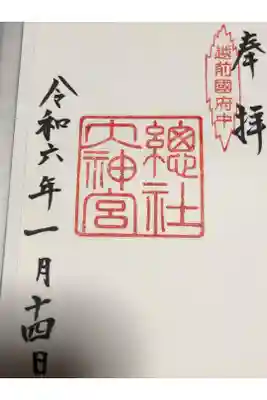 奉拝
越前國府中
總社
大神宮
令和六年一月十四日